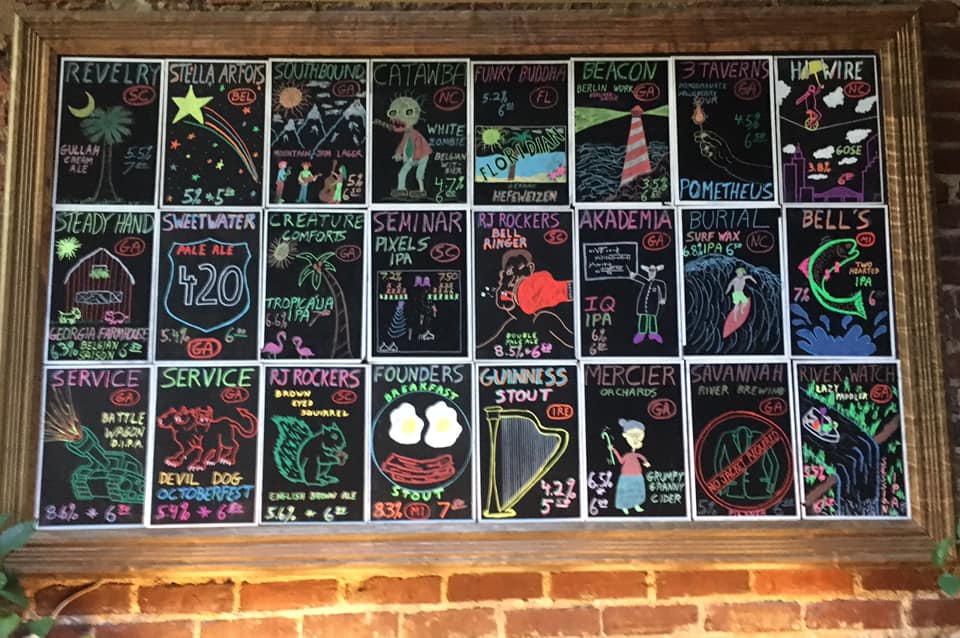 REVELRY
SC
GULLAH
CREAM
ALE
5.5%
STELLA ARTOIS
BEL
5%
SOUTHBOUND
GA
MOUNTAIN JAM LAGER
5%
CATAWBA
NC
WHITE
ZOMBIE
BELGIAN
WIT
BIER
4.7%
FUNKY BUDDHA
5.2%
FL
FLORIDIAN
HEFEWEIZEN
BEACON
BERLIN WORK
GA
3.5%
3 TAVERNS
GA
SOUR
4.5%
POMETHEUS
HI WIRE
NC
GOSE
3.8%
STEADY HAND
GA
GEORGIA FARMHOUSE
BELGIAN
SAISON
SWEETWATER
PALE ALE
420
5.4%
GA
CREATURE
COMFORTS
GA
TROPICALIA
IPA
6.6%
SEMINAR
PIXELS
IPA
SC
7.2%
750
RJ ROCKERS
BELL
RINGER
SC
DOUBLE
PALE ALE
8.5% * 6
AKADEMIA
GA
IQ
IPA
6%
BURIAL
SURF WAX
6.8% IPA
NC
BELL'S
MI
TWO
HEARTED
IPA
7%
SERVICE
GA
BATTLE
WAGON
D.I.P.A.
8.6% *
SERVICE
GA
DEVIL DOG
OCTOBERFEST
5.4% *
RJ ROCKERS
BROWN
EYED
SQUIRREL
SC
ENGLISH BROWN ALE
5.6% *
FOUNDERS
BREAKFAST
STOUT
8.3%
MI
7
GUINNESS
STOUT
IRE
4.2%
MERCIER
ORCHARDS
GA
6.5%
GRUMPY
GRANNY
CIDER
SAVANNAH
RIVER BREWING
GA
NO JACKET REQUIRED
RIVER WATCH
LAZY
PADDLER
GA